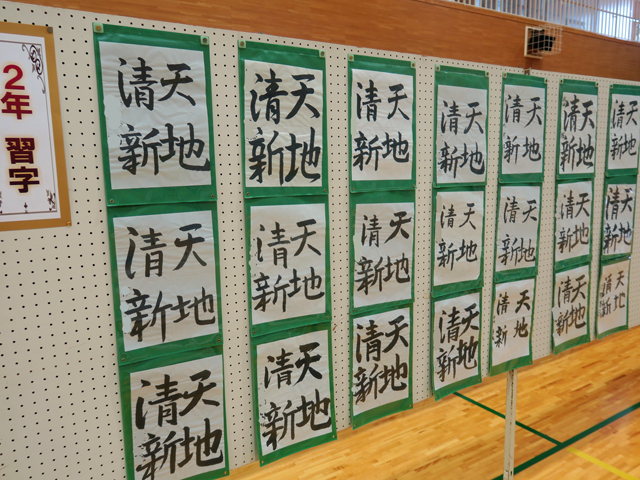 2年 習字
天地
清新
天地
清新
天地
清新
天地
清新
天地
清新
天地
清新
天地
清新
天地
清新
天地
清新
天地
清新
天地
清新
天地
清新
天地
清新
天地
清新
天地
清新
天地
清新
天地
清新
天地
清新
天地
清新
天地
清新
天地
清新